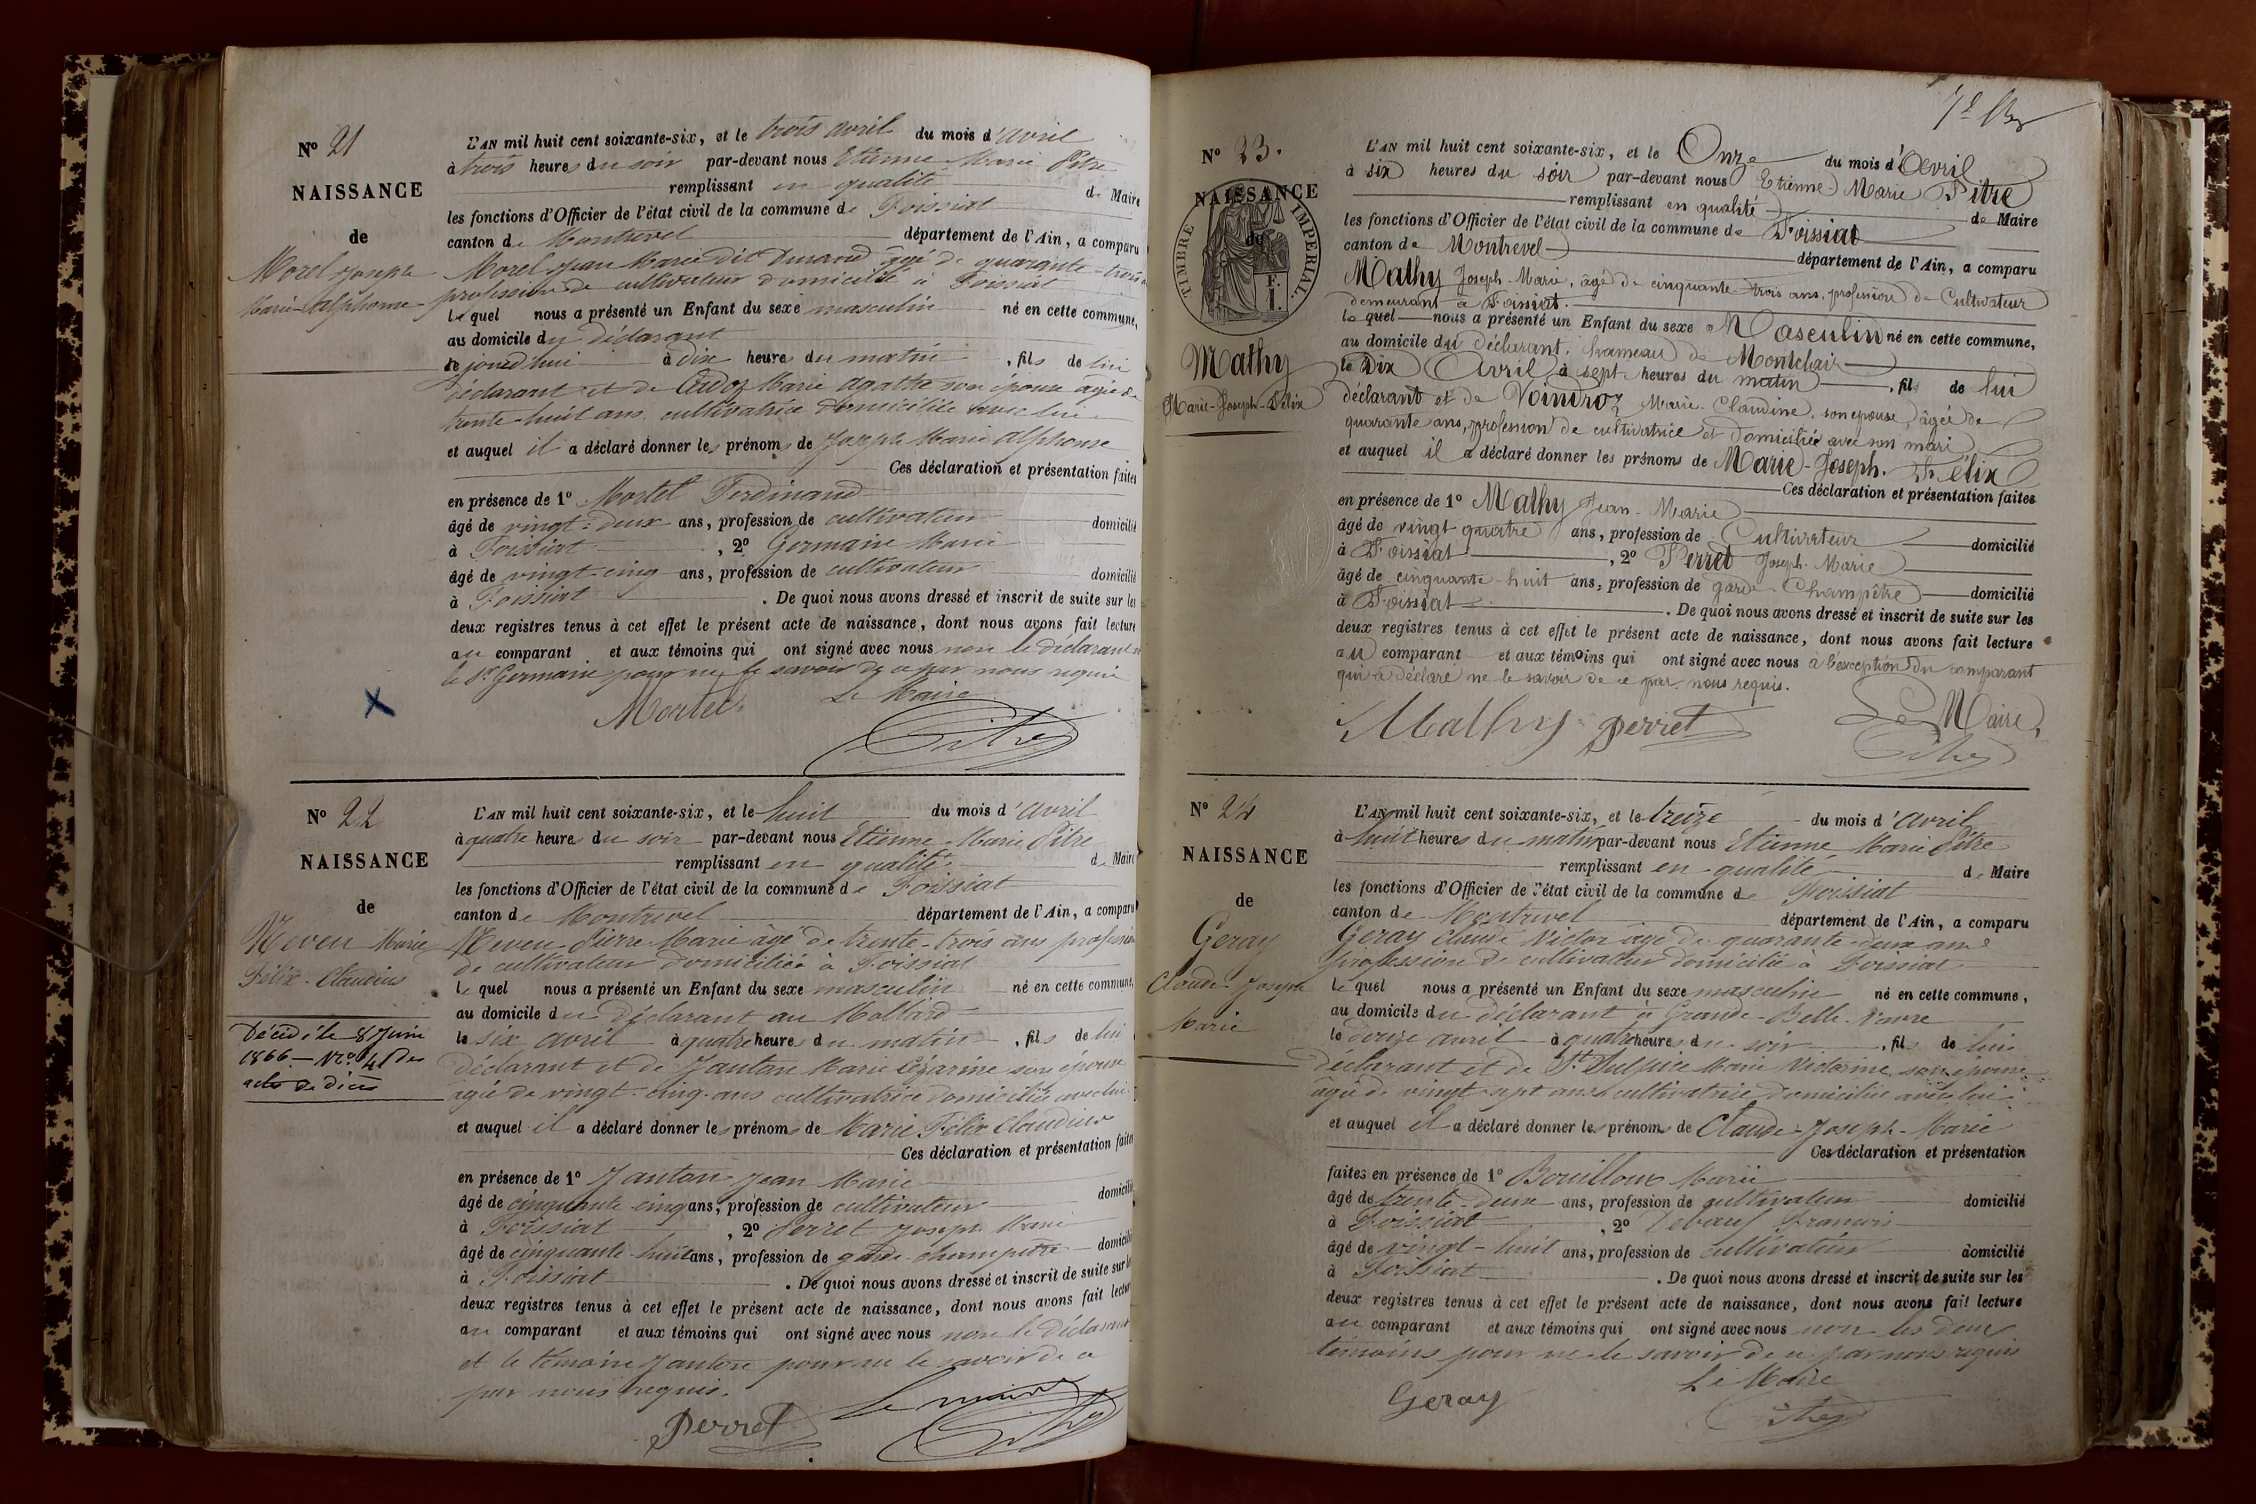 N° 21
NAISSANCE
de
Morel Joseph
Marie-Alphonse
L'AN mil huit cent soixante-six, et le trois avril du mois d'avril
à trois heures du soir par-devant nous Etienne Marie Pitre
remplissant en qualité de Maire
les fonctions d'Officier de l'état civil de la commune de Foissiat
canton de Montrevel département de l'Ain, a comparu
Morel Jean Marie dit Durand âgé de quarante-trois
profession de cultivateur domicilié à Foissiat
lequel nous a présenté un Enfant du sexe masculin né en cette commune,
au domicile du déclarant
le jourd'hui à dix heures du matin, fils de lui
déclarant et de Marie Agathe son épouse âgée de
trente-huit ans, cultivatrice domiciliée avec lui
et auquel il a déclaré donner les prénoms de Joseph Marie Alphonse
Ces déclaration et présentation faites
en présence de 1° Mortel Ferdinand
âgé de vingt-deux ans, profession de cultivateur domicilié
à Foissiat, 2° Germain Marie
âgé de vingt-cinq ans, profession de cultivateur domicilié
à Foissiat. De quoi nous avons dressé et inscrit de suite sur les
deux registres tenus à cet effet le présent acte de naissance, dont nous avons fait lecture
au comparant et aux témoins qui ont signé avec nous non le déclarant
le Sr Germain pour ne le savoir de ce par nous requis
Le Maire
Mortel
Pitre
N° 22
NAISSANCE
de
Neveu Marie
Félix-Claudius
Décédé le 8 Juin
1866 - N° 41 des
actes de décès
L'AN mil huit cent soixante-six, et le huit du mois d'avril
à quatre heures du soir par-devant nous Etienne Marie Pitre
remplissant en qualité de Maire
les fonctions d'Officier de l'état civil de la commune de Foissiat
canton de Montrevel département de l'Ain, a comparu
Neveu Pierre Marie âgé de trente-trois ans profession
de cultivateur domicilié à Foissiat
lequel nous a présenté un Enfant du sexe masculin né en cette commune,
au domicile du déclarant au Mollard
le six avril à quatre heures du matin, fils de lui
déclarant et de Janton Marie Césarine son épouse
âgée de vingt-cinq ans cultivatrice domiciliée avec lui
et auquel il a déclaré donner les prénoms de Marie Félix Claudius
Ces déclaration et présentation faites
en présence de 1° Janton Jean Marie
âgé de cinquante cinq ans, profession de cultivateur domicilié
à Foissiat, 2° Perret Joseph Marie
âgé de cinquante-huit ans, profession de garde-champêtre domicilié
à Foissiat. De quoi nous avons dressé et inscrit de suite sur les
deux registres tenus à cet effet le présent acte de naissance, dont nous avons fait lecture
au comparant et aux témoins qui ont signé avec nous non le déclarant
et le témoin Janton pour ne le savoir de ce
par nous requis.
Le maire
Perret
Pitre
N° 23.
NAISSANCE
de
TIMBRE IMPERIAL.
Mathy
Marie-Joseph-Félix
L'AN mil huit cent soixante-six, et le Onze du mois d'Avril
à six heures du soir par-devant nous Etienne Marie Pitre
remplissant en qualité de Maire
les fonctions d'Officier de l'état civil de la commune de Foissiat
canton de Montrevel département de l'Ain, a comparu
Mathy Joseph-Marie, âgé de cinquante-trois ans, profession de Cultivateur
demeurant à Foissiat.
lequel nous a présenté un Enfant du sexe Masculin né en cette commune,
au domicile du déclarant, hameau de Montclair
le Dix Avril à sept heures du matin, fils de lui
déclarant et de Voindroz Marie-Claudine, son épouse, âgée de
quarante ans, profession de cultivatrice et domiciliée avec son mari
et auquel il a déclaré donner les prénoms de Marie-Joseph-Félix
Ces déclaration et présentation faites
en présence de 1° Mathy Jean-Marie
âgé de vingt quatre ans, profession de Cultivateur domicilié
à Foissiat, 2° Perret Joseph-Marie
âgé de cinquante-huit ans, profession de garde Champêtre domicilié
à Foissiat. De quoi nous avons dressé et inscrit de suite sur les
deux registres tenus à cet effet le présent acte de naissance, dont nous avons fait lecture
au comparant et aux témoins qui ont signé avec nous à l'exception du comparant
qui a déclaré ne le savoir de ce par nous requis.
Le Maire,
Mathy Perret
Pitre
N° 24
NAISSANCE
de
Geray
Claude-Joseph
Marie
L'AN mil huit cent soixante-six, et le treize du mois d'avril
à huit heures du matin par-devant nous Etienne Marie Pitre
remplissant en qualité de Maire
les fonctions d'Officier de l'état civil de la commune de Foissiat
canton de Montrevel département de l'Ain, a comparu
Geray Claude Victor âgé de quarante-deux ans
profession de cultivateur domicilié à Foissiat
lequel nous a présenté un Enfant du sexe masculin né en cette commune,
au domicile du déclarant à Grande-Belle-Vavre
le douze avril à quatre heures du soir, fils de lui
déclarant et de St Sulpice Marie Victorine son épouse
âgée de vingt-sept ans cultivatrice domiciliée avec lui
et auquel il a déclaré donner les prénoms de Claude-Joseph-Marie
Ces déclaration et présentation
faites en présence de 1° Bouilloux Marie
âgé de trente-deux ans, profession de cultivateur domicilié
à Foissiat, 2° François
âgé de vingt-huit ans, profession de cultivateur domicilié
à Foissiat. De quoi nous avons dressé et inscrit de suite sur les
deux registres tenus à cet effet le présent acte de naissance, dont nous avons fait lecture
au comparant et aux témoins qui ont signé avec nous non les deux
témoins pour ne le savoir de ce par nous requis
Le Maire
Geray
Pitre